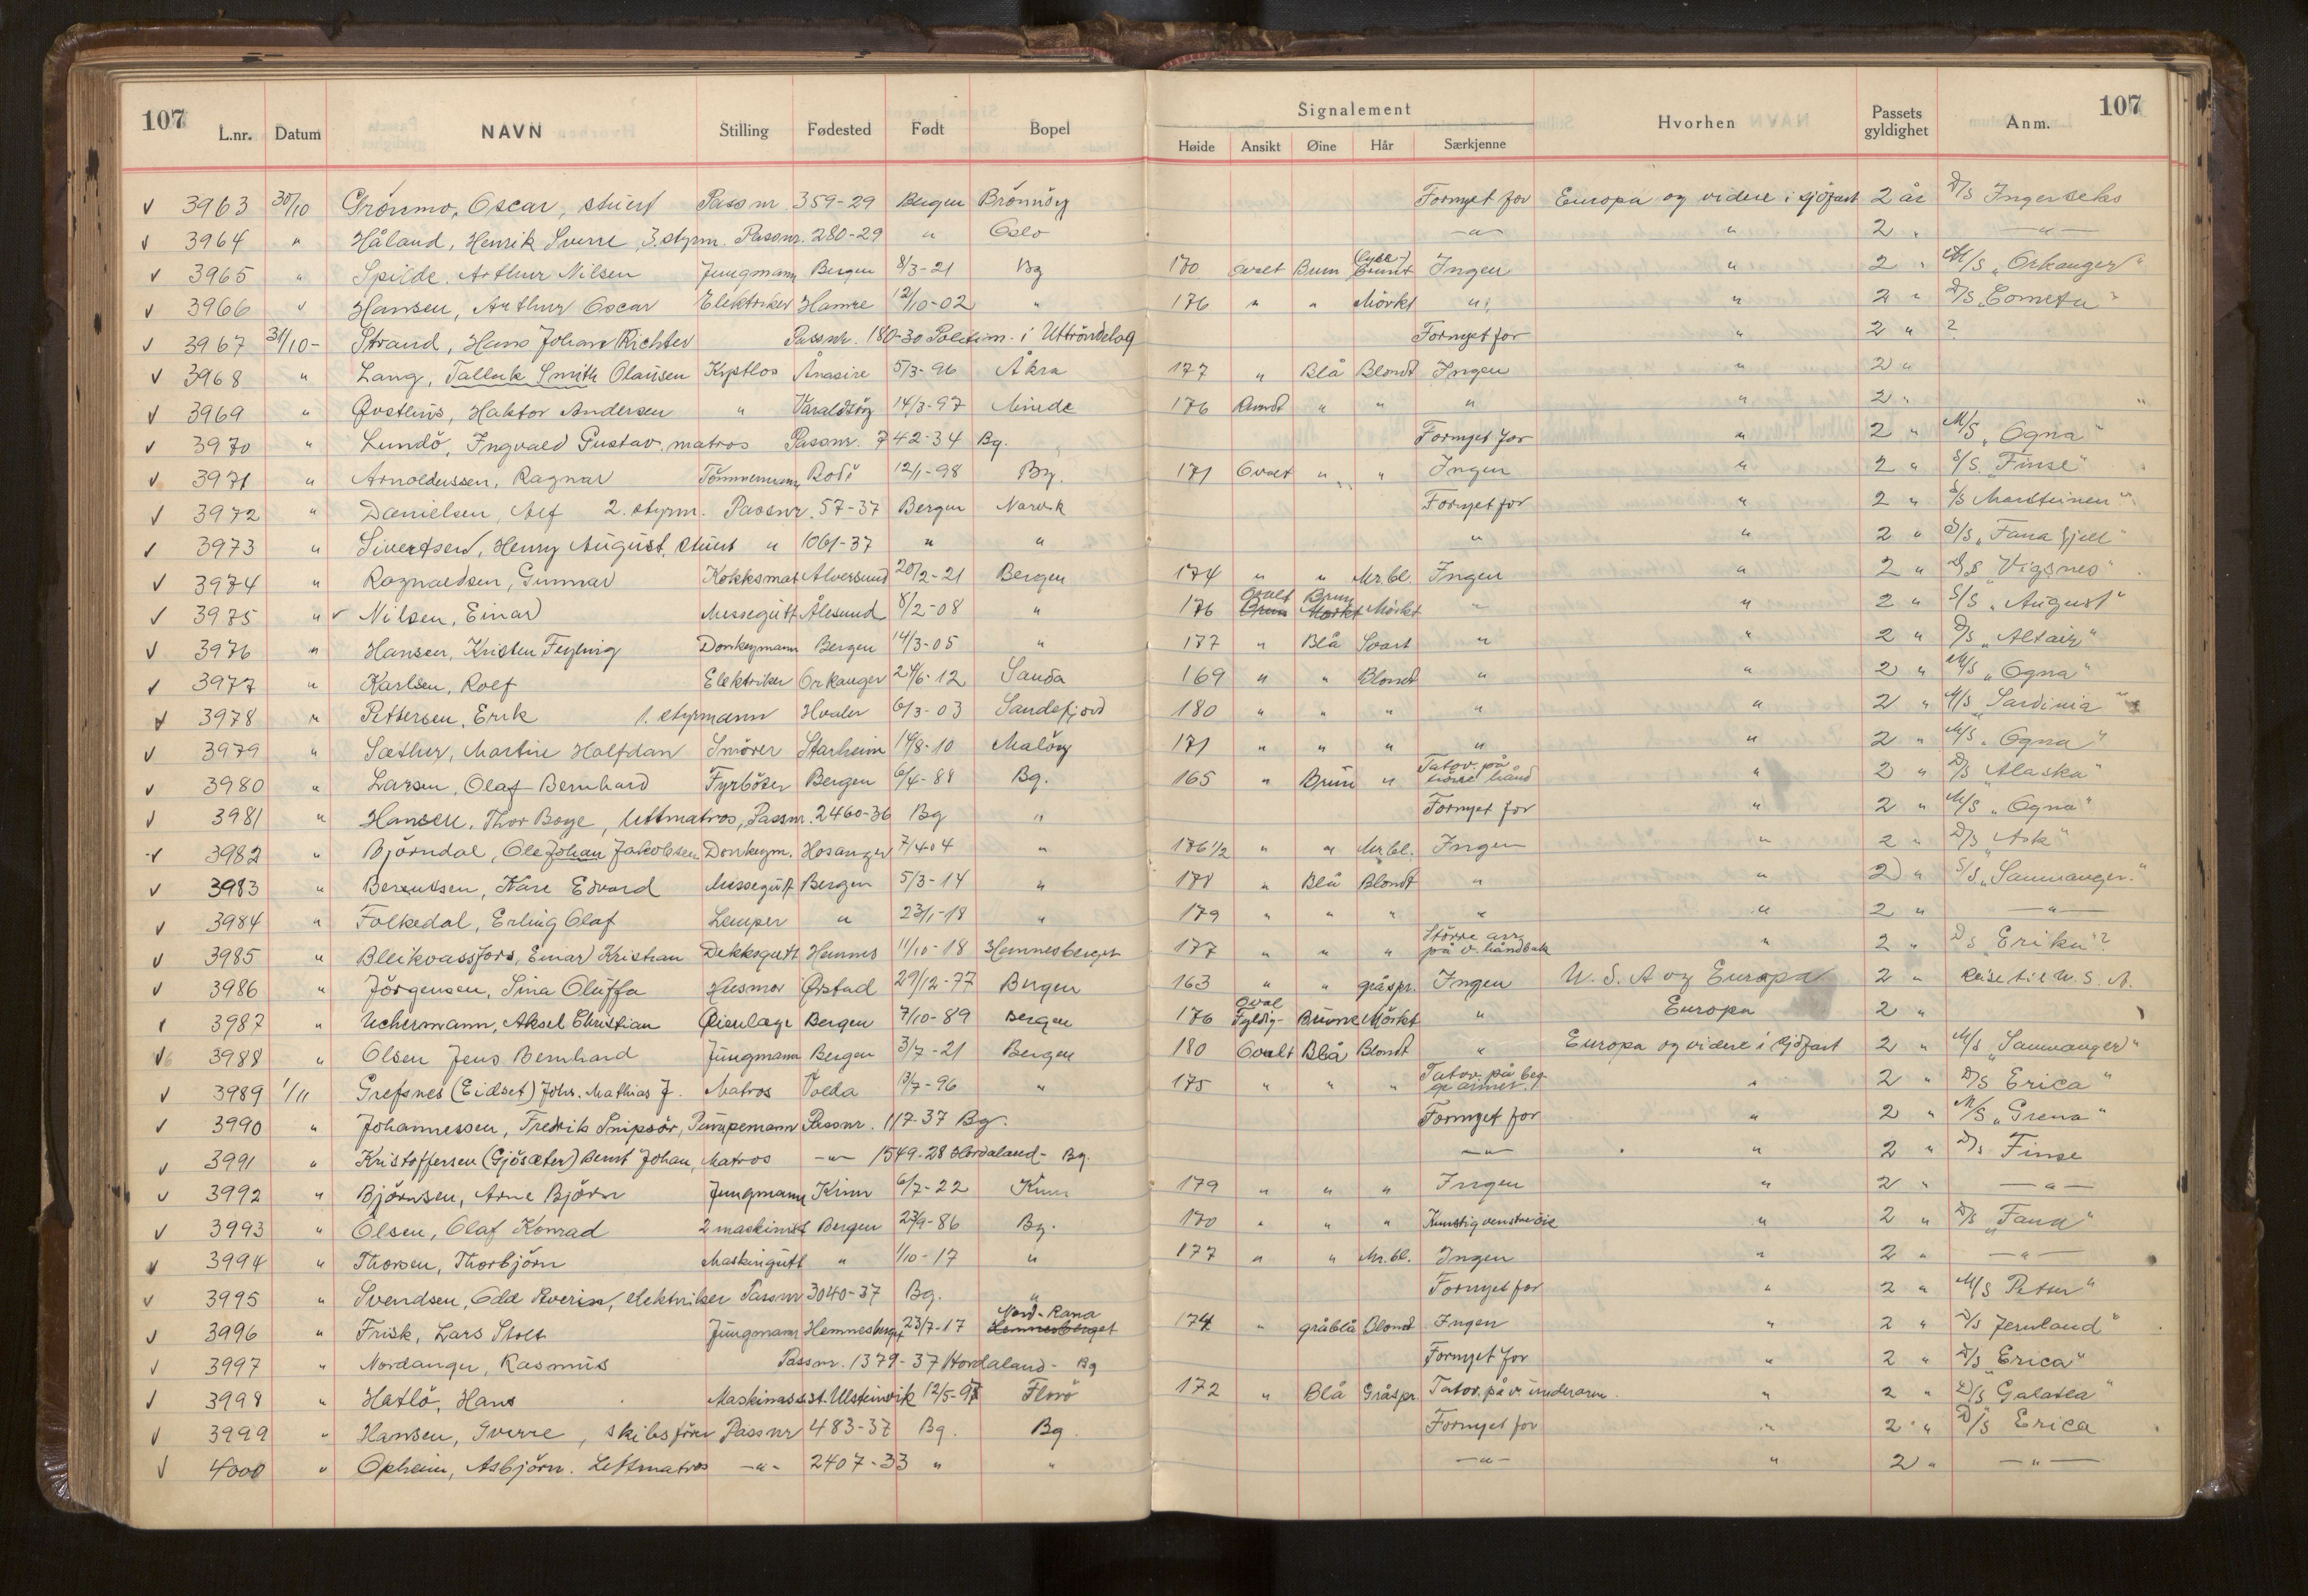 107 Signalement 107
L.nr. Datum NAVN Stilling Fødested Født Bopel Høide Ansikt Øine Hår Særkjenne Hvorhen Passets gyldighet Anm.
3963 30/10 Grönmo, Oscar, stuert Passnr. 359-29 Bergen Brönnöy Fornyet for Europa og videre i sjöfart 2 år D/S Ingerseks
3964 " Håland, Henrik Sverre 3. styrm. Passnr. 280-29 " Oslo —"— " 2 " —"—
3965 " Spilde, Arthur Nilsen Jungmann Bergen 8/3-21 Bg 170 ovalt Brun (lyse) Brunt Ingen " 2 " M/S „Orkanger"
3966 " Hansen, Arthur Oscar Elektriker Hamre 12/10-02 " 176 " " Mörkt " " 2 " D/S „Cometa"
3967 31/10- Strand, Hans Johan Richter Passnr. 180-30 Politim. i Uttröndelag Fornyet for " 2 " ?
3968 " Lang, Tallak Smith Olausen Kystlos Ånasire 5/3-96 Åkra 177 " Blå Blondt Ingen " 2 "
3969 " Qvstlius, Haktor Andersen " Varaldsöy 14/3-97 Minde 176 Rundt " " " " 2 " "
3970 " Lundö, Ingvald Gustav. matros Passnr. 742-34 Bg. Fornyet for " 2 " M/S „Ogna"
3971 " Arnoldussen, Ragnar Tömmermann Bodö 12/1-98 Bg. 171 Ovalt " " Ingen " 2 " S/S „Finse"
3972 " Danielsen, Alf 2. styrm. Passnr. 57-37 Bergen Narvik Fornyet for " 2 " S/S Marsteinen"
3973 " Sivertsen, Henry August, stuert " 1061-37 " " " " 2 " D/S „Fana fjell"
3974 " Ragnaldsen, Gunnar Kokksmat Alversund 20/2-21 Bergen 174 " " Mr.bl. Ingen " 2 " D/S „Vigsnes"
3975 " Nilsen, Einar Messegutt Ålesund 8/2-08 " 176 Ovalt Brun Brun Mörkt Mörkt " " 2 " S/S „August"
3976 " Hansen, Kristen Feyling Donkeymann Bergen 14/3-05 " 177 " Blå Svart " " 2 " D/S „Altair"
3977 " Karlsen, Rolf Elektriker Orkanger 24/6-12 Sauda 169 " " Blondt " " 2 " M/S „Ogna"
3978 " Pettersen, Erik 1. styrmann Hvaler 6/3-03 Sandefjord 180 " " " " " 2 " M/S „Sardinia"
3979 " Sæther, Martin Halfdan Smörer Starheim 14/8-10 Malöy 171 " " " " " 2 " M/S „Ogna"
3980 " Larsen, Olaf Bernhard Fyrböter Bergen 6/4-88 Bg. 165 " Brun " Tatov. på höire hånd " 2 " D/S „Alaska"
3981 " Hansen, Thor Boye, lettmatros, Passnr. 2460-36 Bg " Fornyet for " 2 " M/S „Ogna"
3982 " Björndal, Ole Johan Jakobsen Donkeym. Hosanger 7/4 04 " 176 1/2 " " Mr.bl. Ingen " 2 " D/S „Ask"
3983 " Berentsen, Kåre Edvard Messegutt Bergen 5/3-14 " 178 " Blå Blondt " " 2 " S/S „Samnanger."
3984 " Folkedal, Erling Olaf Lemper " 23/1-18 " 179 " " " " " 2 " —"—
3985 " Bleikvassfors, Einar Kristian Dekksgutt Hemnes 11/10-18 Hemnesberget 177 " " " Större arr på v. håndbak " 2 " D/S „Erika"?
3986 " Jörgensen, Sina Oluffa Husmor Ørstad 29/12-77 Bergen 163 " " gråspr. Ingen U.S.A og Europa 2 " Reise til U.S.A.
3987 " Uchermann, Aksel Christian Øienlæge Bergen 7/10-89 Bergen 176 Oval Fyldig- Brune Mörkt " Europa 2 "
3988 " Olsen Jens Bernhard Jungmann Bergen 3/7-21 Bergen 180 Ovalt Blå Blondt " Europa og videre i sjöfart 2 " M/S „Samnanger"
3989 1/11 Grefsnes (Eidset) Johs. Mathias J. Matros Volda 13/7-96 " 175 " " " Tatov. på beg- ge armer. " 2 " D/S Erica"
3990 " Johannessen, Fredrik Snipsör, Pumpemann Passnr. 117-37 Bg. Fornyet for " 2 " M/S „Grena"
3991 " Kristoffersen (Gjösæter) Bernt Johan, Matros —"— 1549-28 Hordaland- Bg. —"— " 2 " D/S Finse
3992 " Björnsen, Arne Björn Jungmann Kinn 6/7-22 Kinn 179 " " " Ingen " 2 " —"—
3993 " Olsen, Olaf Konrad 2 maskinist Bergen 23/9-86 Bg. 170 " " " Kunstig venstre öie " 2 " D/S „Fana"
3994 " Thorsen, Thorbjörn Maskingutt " 1/10-17 " 177 " " Mr.bl. Ingen " 2 " —"—
3995 " Svendsen, Odd Severin, elektriker Passnr 3040-37 Bg. " Fornyet for " 2 " M/S Peter"
3996 " Frisk, Lars Stolt Jungmann Hemnesberget 23/7-17 Nord-Rana Hemnesberget 174 " gråblå Blond Ingen " 2 " D/S Jernland"
3997 " Nordanger, Rasmus Passnr. 1379-37 Hordaland- Bg Fornyet for " 2 " D/S „Erica"
3998 " Hatlö, Hans Maskinasst. Ulsteinvik 12/5-97 Florö 172 " Blå Gråspr. Tatov. på v. underarm. " 2 " D/S „Galatea"
3999 " Hansen, Sverre, skibsförer Passnr 483-37 Bg. Bg. Fornyet for " 2 " D/S Erica
4000 " Opheim, Asbjörn. Lettmatros —"— 2407-33 " " —"— " 2 " —"—